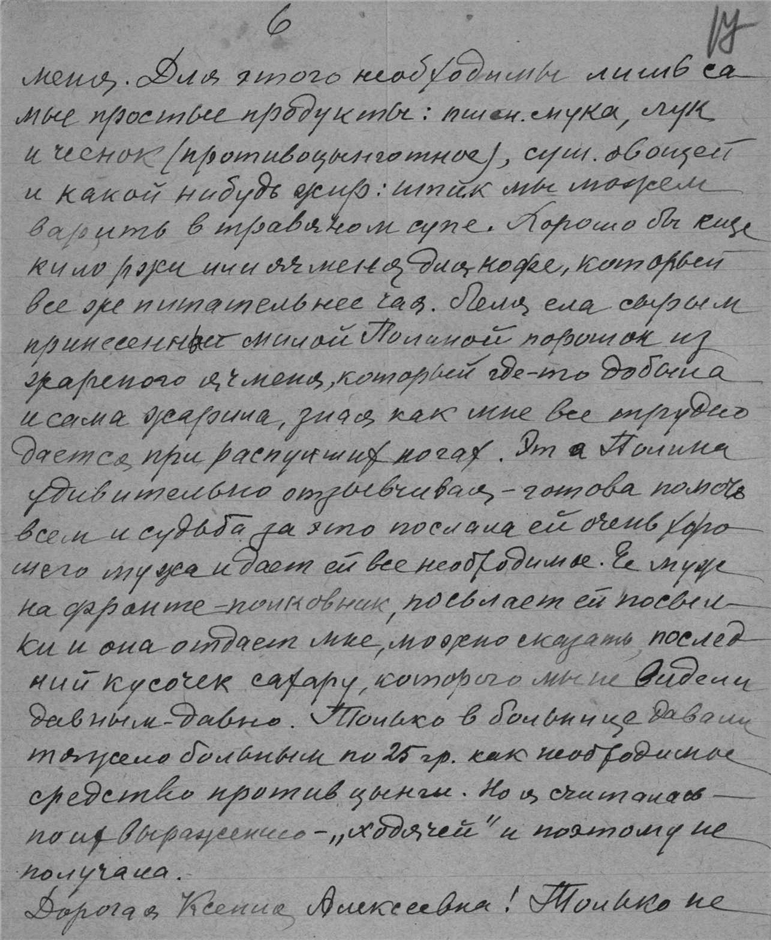 6
меня. Для этого необходимы лишь са-
мые простые продукты: пшен. мука, лук
и чеснок (противоцынготное), суш. овощей
и какой нибудь жир: шпик мы можем
варить в травяном супе. Хорошо бы еще
кило ржи или ячменя для кофе, который
все же питательнее чая. Леля ела сырым
принесенный милой Полиной порошок из
жареного ячменя, который где-то добыла
и сама жарила, зная как мне все трудно
дается при распухших ногах. Эта Полина
удивительно отзывчивая - готова помочь
всем и судьба за это послала ей очень хоро-
шего мужа и дает ей все необходимое. Ее муж
на фронте - полковник, посылает ей посыл-
ки и она отдает мне, можно сказать, послед-
ний кусочек сахару, которого мы не видели
давным-давно. Только в больнице давали
тяжело больным по 25 гр. как необходимое
средство против цынги. Но я считалась -
по их выражению - „ходячей" и поэтому не
получала.
Дорогая Ксения Алексеевна! Только не